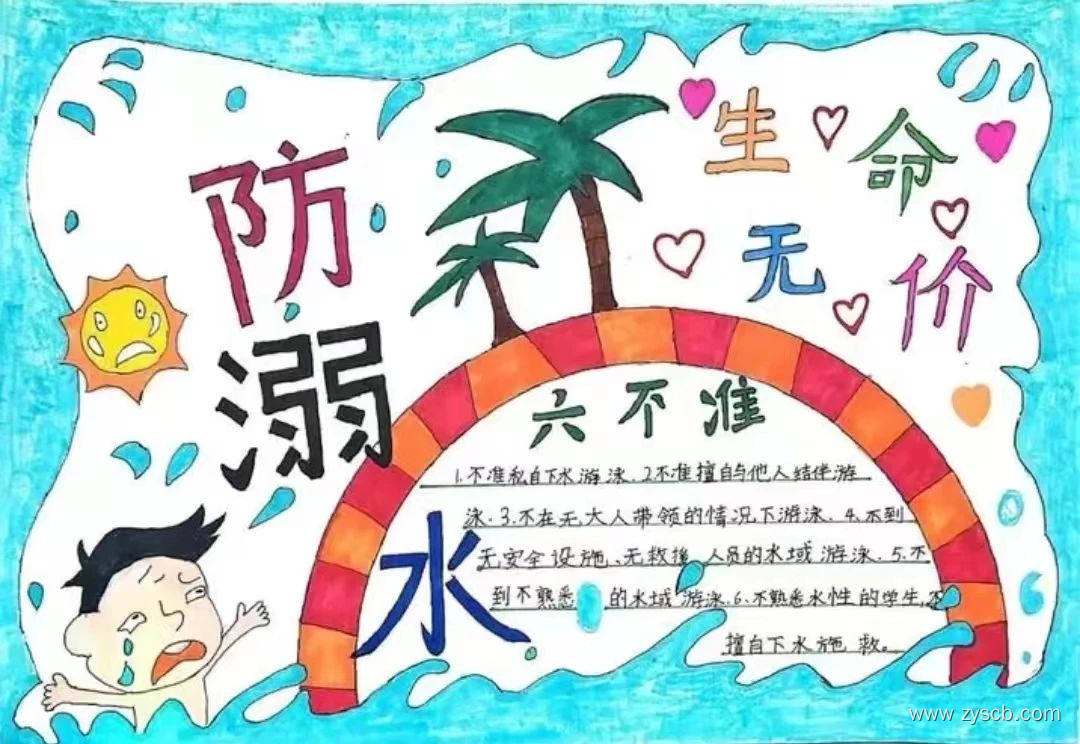 防溺水
生命
无价
六不准
1.不准私自下水游泳.2不准擅自与他人结伴游
泳.3.不在无大人带领的情况下游泳.4.不到
无安全设施、无救援人员的水域游泳.5.不
到不熟悉的水域游泳.6.不熟悉水性的学生,不
擅自下水施救。
www.zyscb.com